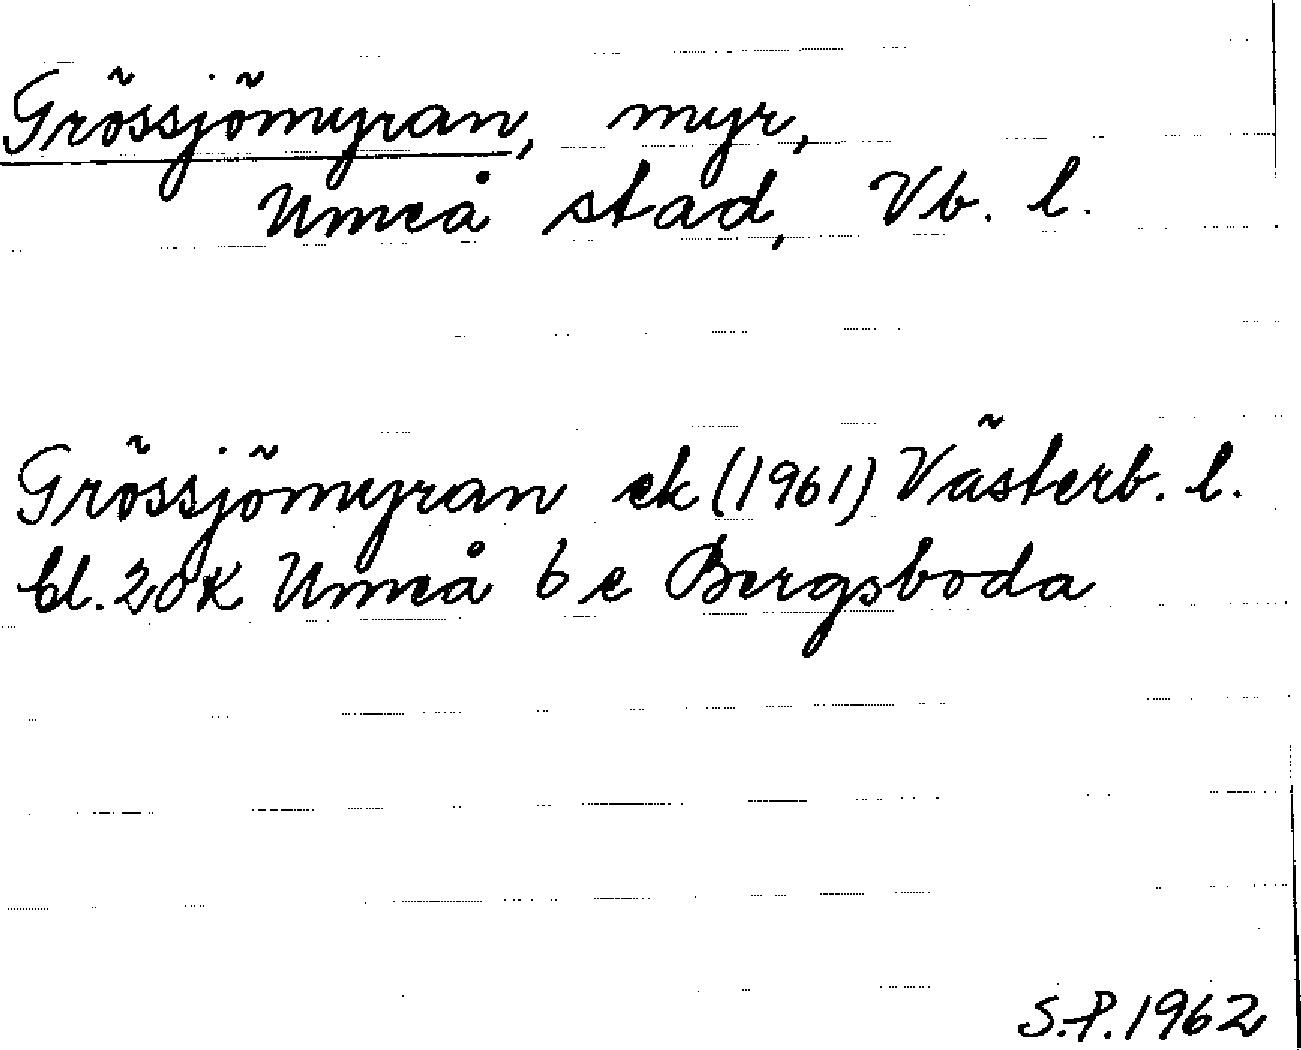 Grössjömyran, myr,
Umeå stad, Vb. l.
Grössjömyran ek (1961) Västerb. l.
bl. 20K Umeå 6 e Bergsboda
S.P. 1962